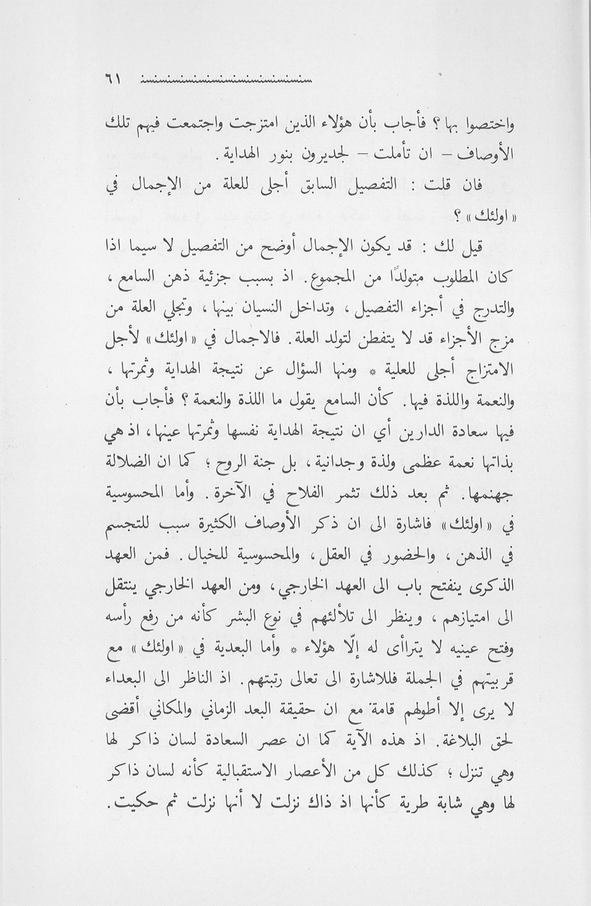 ٦١
واختصوا بها ؟ فأجاب بأن هؤلاء الذين امتزجت واجتمعت فيهم تلك
الأوصاف – ان تأملت – لجديرون بنور الهداية .
فان قلت : التفصيل السابق أجلى للعلة من الإجمال في
« اولئك » ؟
قيل لك : قد يكون الإجمال أوضح من التفصيل لا سيما اذا
كان المطلوب متولدًا من المجموع . اذ بسبب جزئية ذهن السامع ،
والتدرج في أجزاء التفصيل ، وتداخل النسيان بينها ، وتجلي العلة من
مزج الأجزاء قد لا يتفطن لتولد العلة . فالاجمال في « اولئك » لأجل
الامتزاج أجلى للعلية * ومنها السؤال عن نتيجة الهداية وثمرتها ،
والنعمة واللذة فيها . كأن السامع يقول ما اللذة والنعمة ؟ فأجاب بأن
فيها سعادة الدارين أي ان نتيجة الهداية نفسها وثمرتها عينها ، اذ هي
بذاتها نعمة عظمى ولذة وجدانية ، بل جنة الروح ؛ كما ان الضلالة
جهنمها . ثم بعد ذلك تثمر الفلاح في الآخرة . وأما المحسوسية
في « اولئك » فاشارة الى ان ذكر الأوصاف الكثيرة سبب للتجسم
في الذهن ، والحضور في العقل ، والمحسوسية للخيال . فمن العهد
الذكرى ينفتح باب الى العهد الخارجي ، ومن العهد الخارجي ينتقل
الى امتيازهم ، وينظر الى تلألئهم في نوع البشر كأنه من رفع رأسه
وفتح عينيه لا يتراأى له إلّا هؤلاء * وأما البعدية في « اولئك » مع
قربيتهم في الجملة فللاشارة الى تعالى رتبتهم . اذ الناظر الى البعداء
لا يرى إلا أطولهم قامة مع ان حقيقة البعد الزماني والمكاني أقضى
لحق البلاغة . اذ هذه الآية كما ان عصر السعادة لسان ذاكر لها
وهي تنزل ؛ كذلك كل من الأعصار الاستقبالية كأنه لسان ذاكر
لها وهي شابة طرية كأنها اذ ذاك نزلت لا أنها نزلت ثم حكيت .